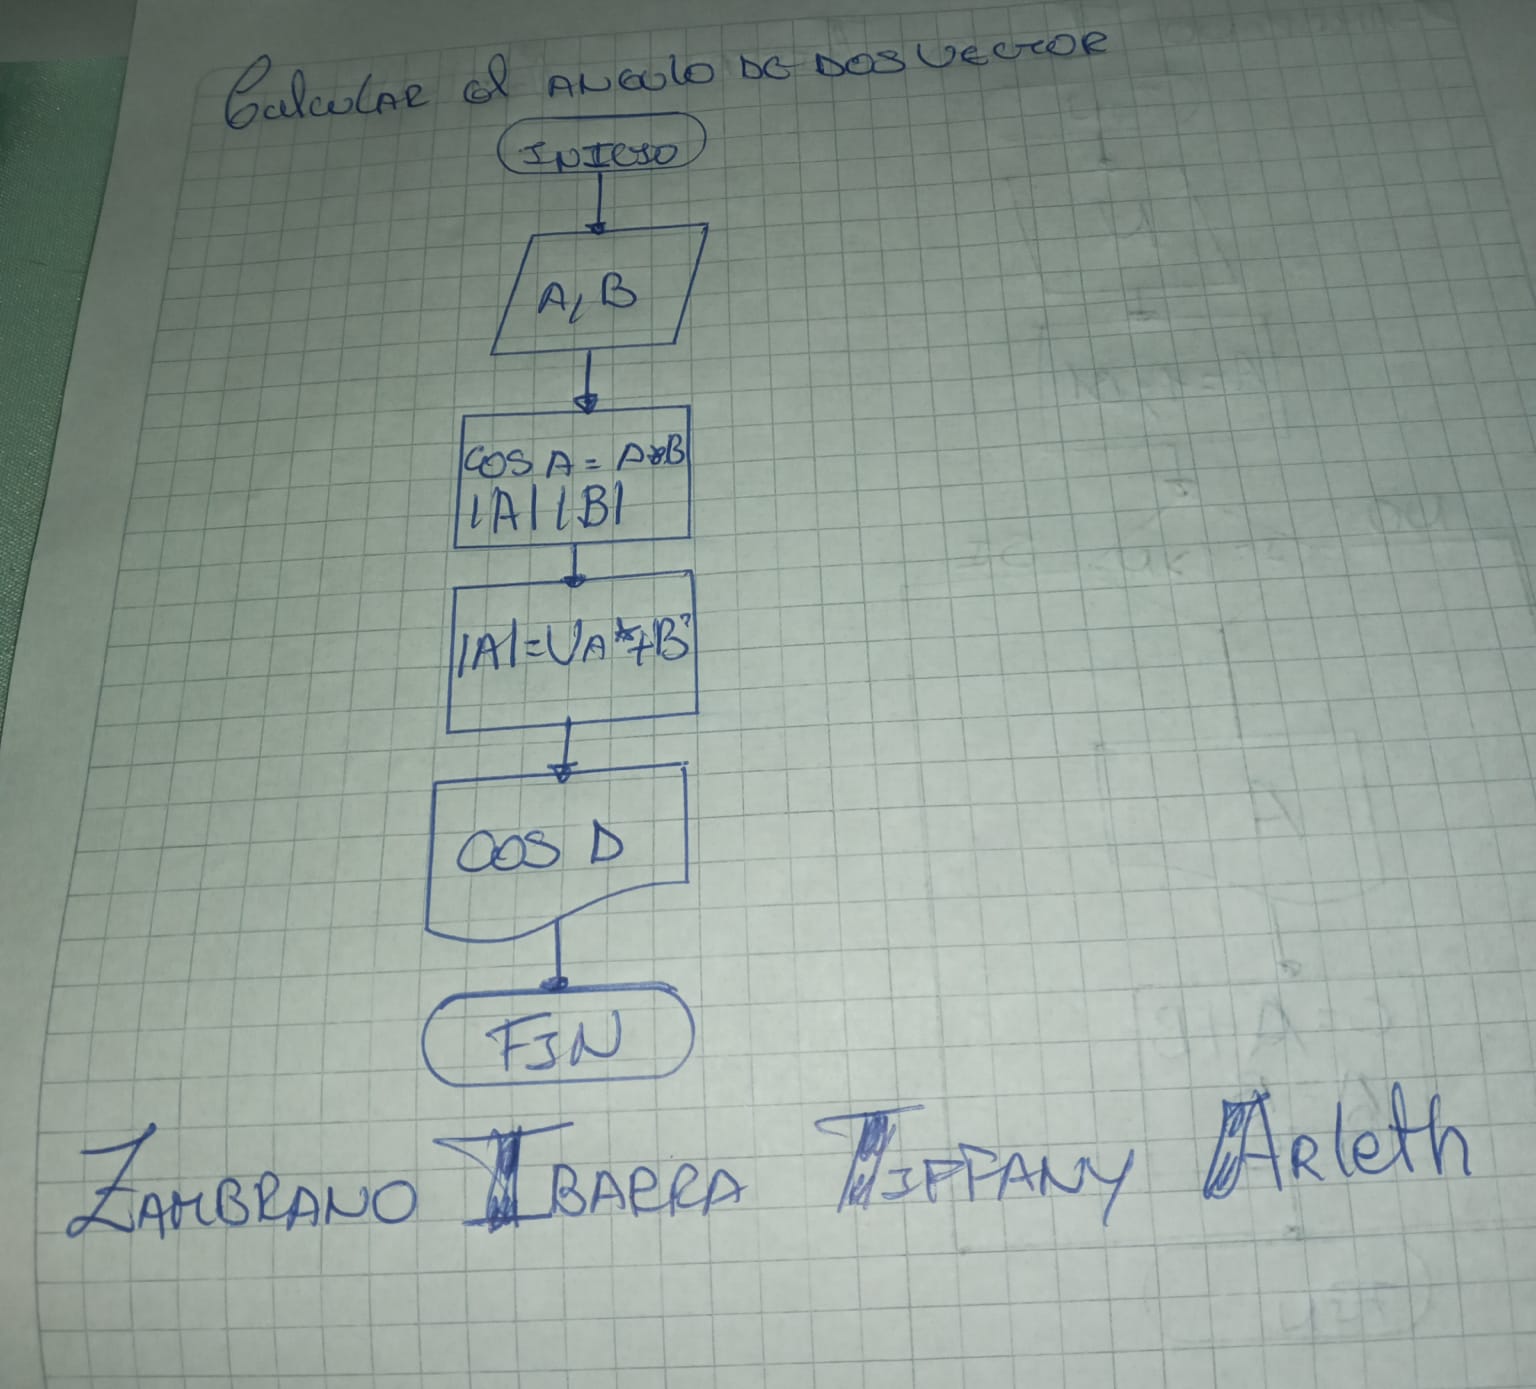 Calcular el ANGulo DE DOS VECTOR
INICIO
A, B
COS A = A*B
|A| |B|
|A|=√A²+B²
COS D
FIN
ZAMBRANO IBARRA TIFFANY ARleth